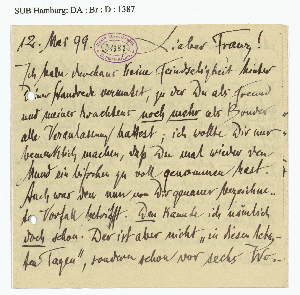 SUB Hamburg: DA : Br : D : 1387
12. Mai 99 Lieber Franz!
Ich habe durchaus keine Feindseligkeit hinter
Deiner vermutet, zu der Du als Freund
und meines Erachtens noch mehr als Bruder
alle Veranlassung hattest; ich wollte Dir nur
bemerklich machen, daß Du mal wieder den
Mund ein bischen zu voll genommen hast.
Auch was den nun von Dir genauer bezeichne-
te Vorfall betrifft. Den kannte ich nämlich
doch schon. Der ist aber nicht „in diesen letz-
ten Tagen", sondern schon vor sechs Wo-